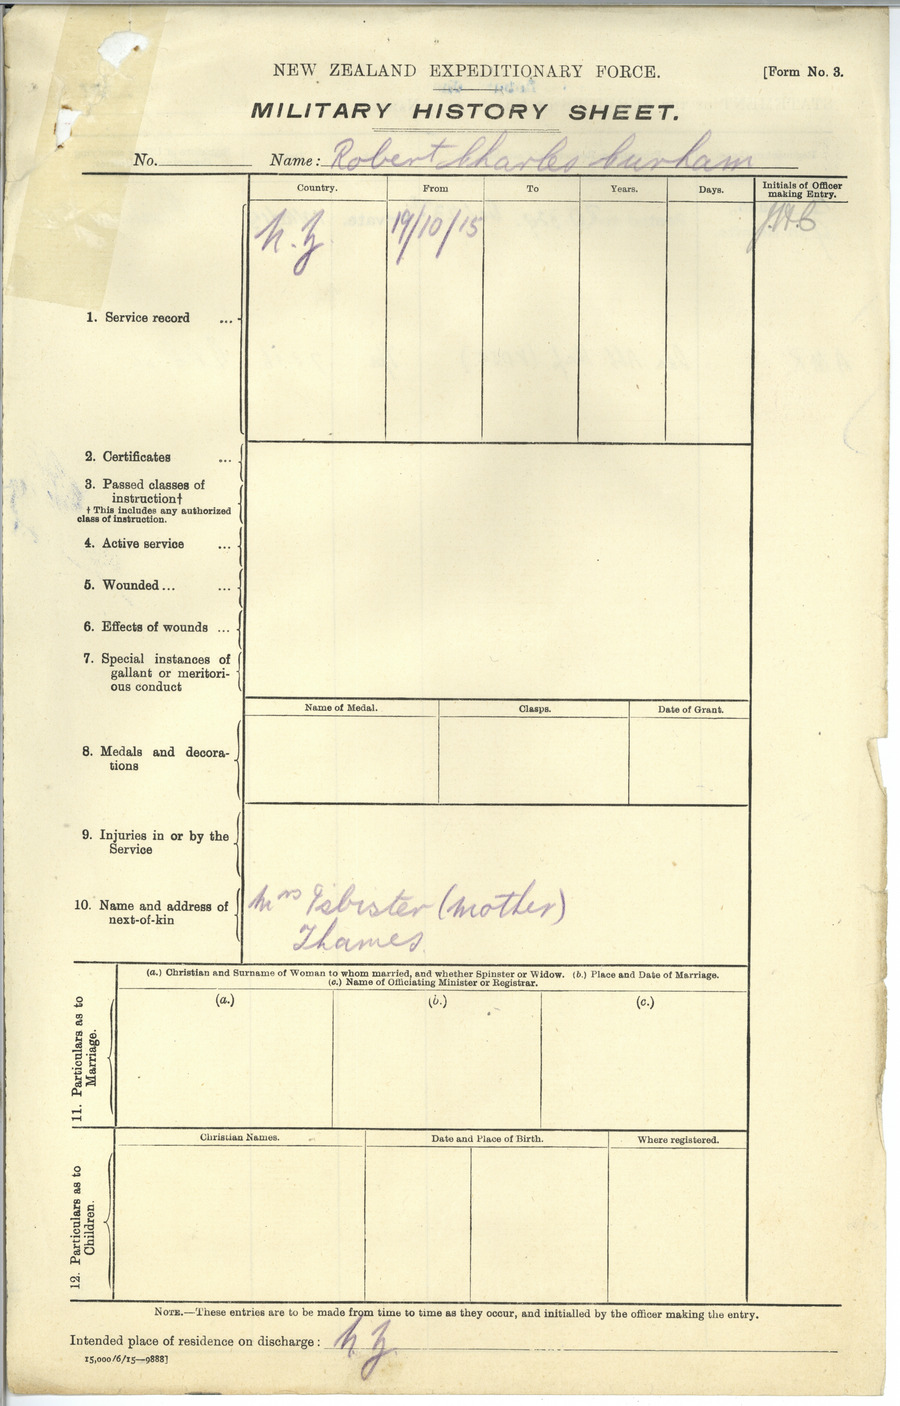 NEW ZEALAND EXPEDITIONARY FORCE. [Form No. 3.
MILITARY HISTORY SHEET.
No. Name: Robert Charles Curham
Country. From To Years. Days. Initials of Officer making Entry.
N.Z 19/10/15 J.H.C
1. Service record ...
2. Certificates ...
3. Passed classes of
instruction†
† This includes any authorized
class of instruction.
4. Active service ...
5. Wounded... ...
6. Effects of wounds ...
7. Special instances of
gallant or meritori-
ous conduct
Name of Medal. Clasps. Date of Grant.
8. Medals and decora-
tions
9. Injuries in or by the
Service
10. Name and address of
next-of-kin
Mrs Isbister (mother)
Thames
(a.) Christian and Surname of Woman to whom married, and whether Spinster or Widow. (b.) Place and Date of Marriage.
(c.) Name of Officiating Minister or Registrar.
11. Particulars as to
Marriage.
(a.) (b.) (c.)
Christian Names. Date and Place of Birth. Where registered.
12. Particulars as to
Children.
NOTE.—These entries are to be made from time to time as they occur, and initialled by the officer making the entry.
Intended place of residence on discharge: N.Z.
15,000/6/15—9888]